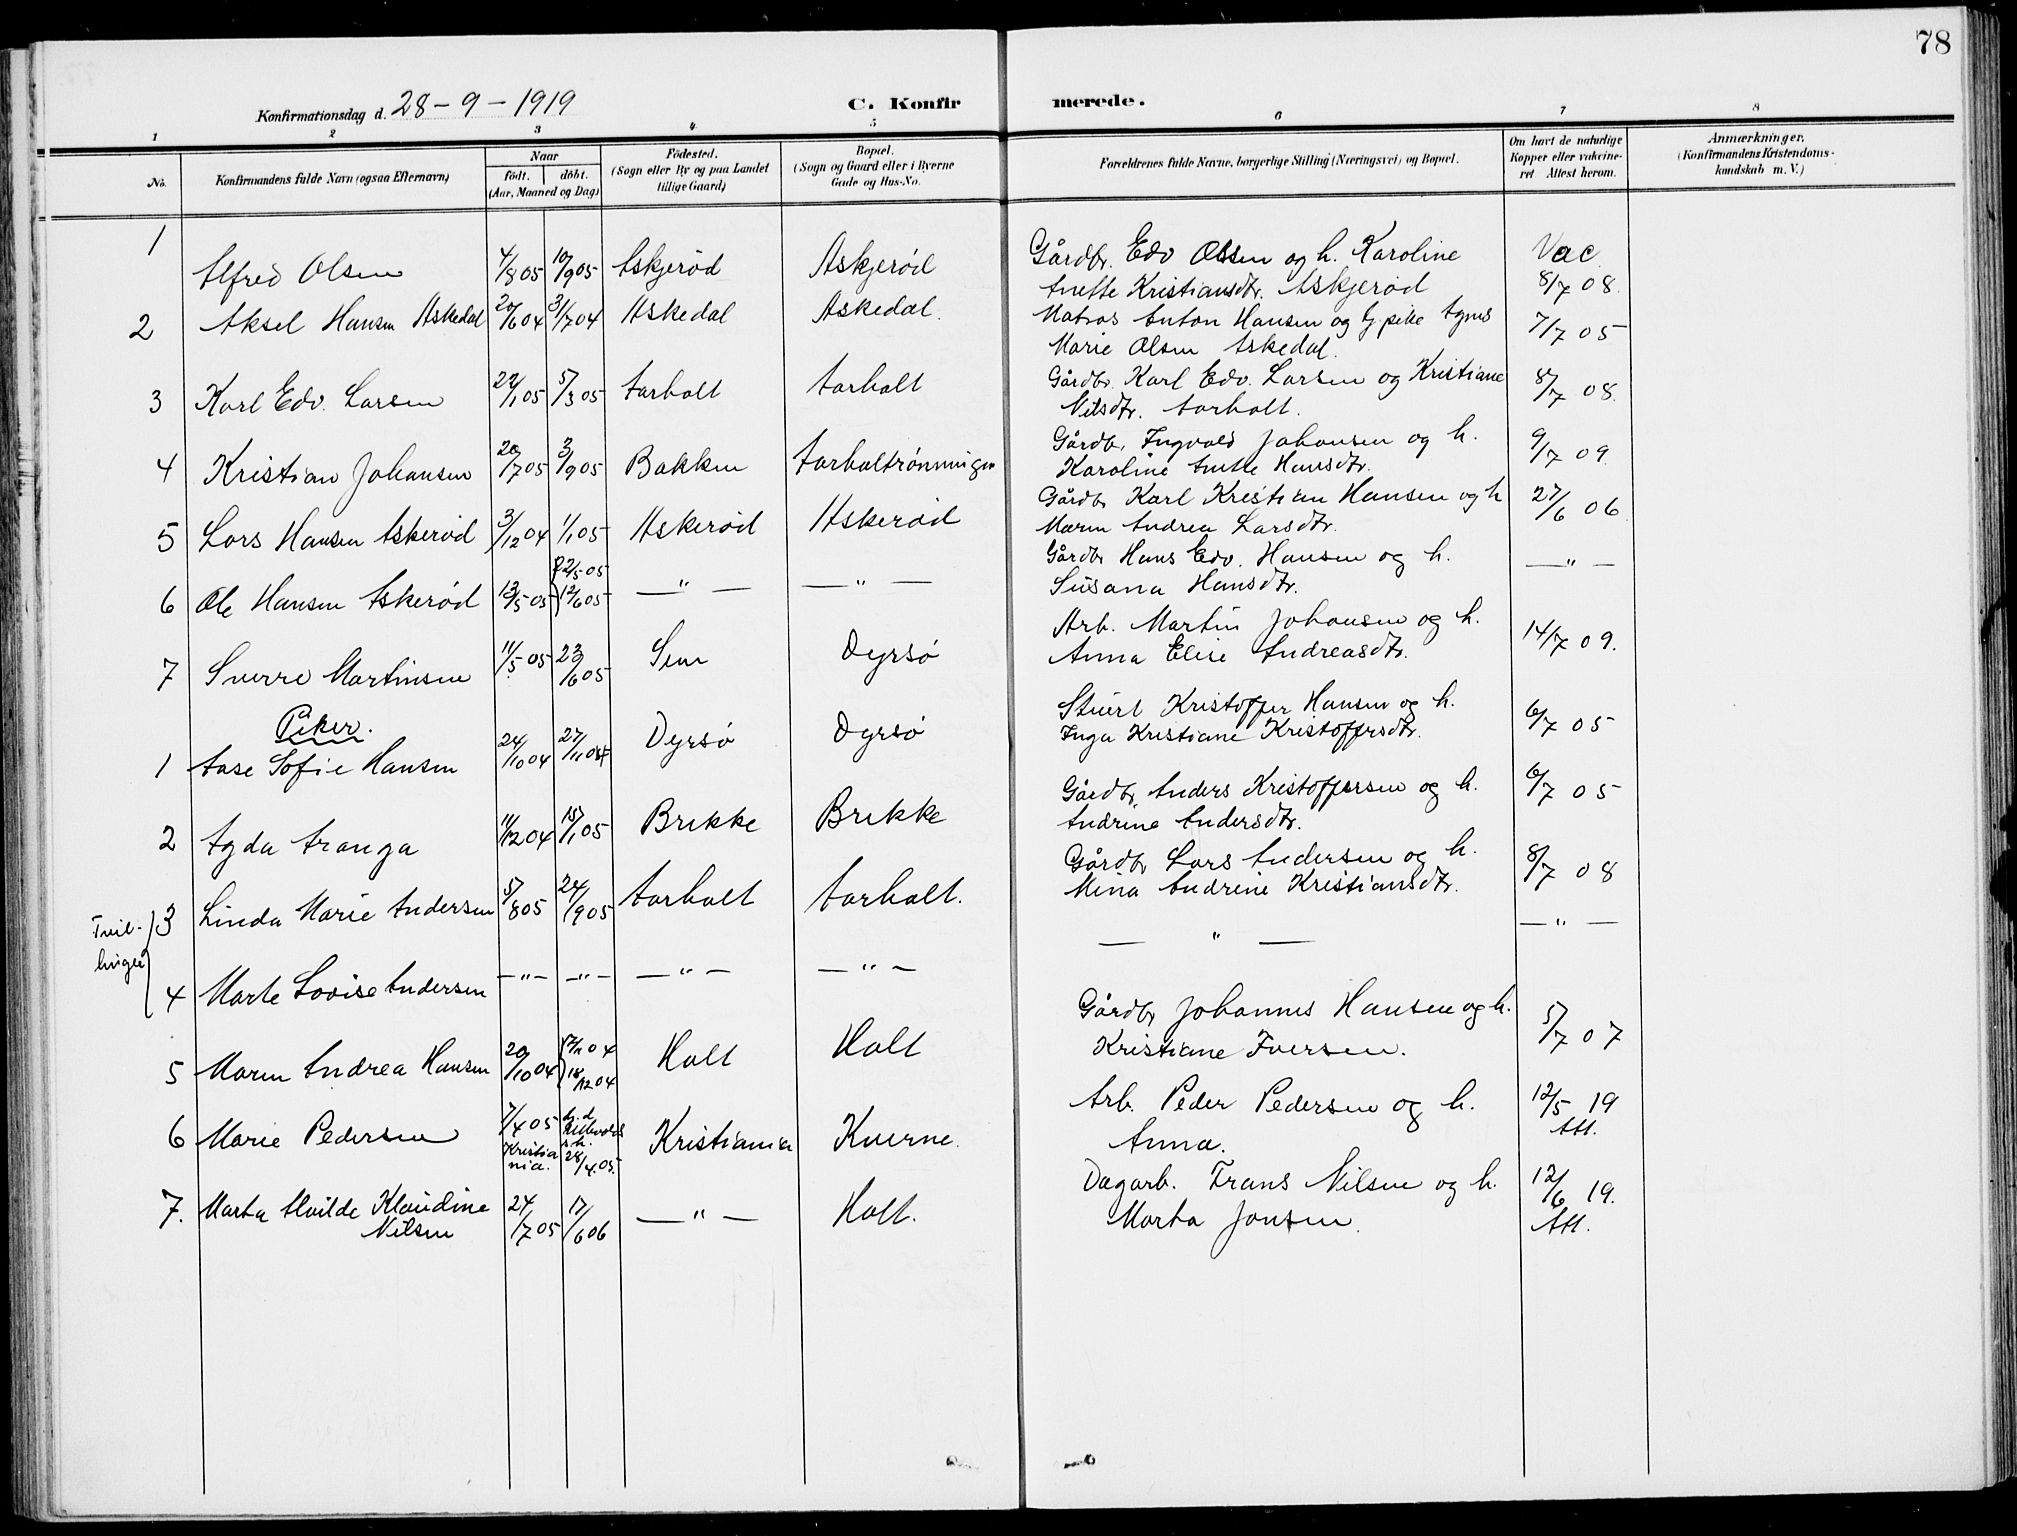 78
Konfirmationsdag d. 28-9-1919
C. Konfirmerede.
1 2 3 4 5 6 7 8
No.
Konfirmandens fulde Navn (ogsaa Efternavn)
Naar
födt. döbt.
(Aar, Maaned og Dag)
Födested.
(Sogn eller By og paa Landet
tillige Gaard)
Bopæl.
(Sogn og Gaard eller i Byerne
Gade og Hus-No.
Forældrenes fulde Navne, borgerlige Stilling (Næringsvei) og Bopæl.
Om havt de naturlige
Kopper eller vakcine-
ret Attest herom.
Anmærkninger.
(Konfirmandens Kristendoms-
kundskab m. V.)
1 Alfred Olsen 4/8 05 10/9 05 Askjerød Askjerød Gårdbr. Edv Olsen og h. Karoline Vac
Anette Kristiansdtr. Askjerød 8/7 08.
2 Aksel Hansen Askedal 20/6 04 31/7 04 Askedal Askedal. Matros Anton Hansen og pike Agnes 7/7 05
Marie Olsen Askedal.
3 Karl Edv. Larsen 22/1 05 5/3 05 Aarholt Aarholt Gårdbr. Karl Edv. Larsen og Kristiane 8/7 08.
Nilsdtr. Aarholt.
4 Kristian Johansen 20/7 05 3/9 05 Bakken Aarholtrønningen Gårdbr. Ingvald Johansen og h. 9/7 09.
Karoline Anette Hansdtr.
5 Lars Hansen Askerød 3/12 04 1/1 05 Askerød Askerød Gårdbr Karl Kristian Hansen og h 27/6 06
Maren Andrea Larsdtr.
6 Ole Hansen Askerød 13/5 05 22/5 05 — " — — " — Gårdbr Hans Edv. Hansen og h. — " —
12/6 05 Susana Hansdtr.
7 Sverre Martinsen 11/5 05 23/6 05 Sem Dyrsø Arb. Martin Johansen og h. 14/7 09.
Anna Elise Andreasdtr.
Piker.
1 Aase Sofie Hansen 24/10 04 27/11 04 Dyrsø Dyrsø Stuert Kristoffer Hansen og h. 6/7 05
Inga Kristiane Kristoffersdtr.
2 Agda Aranga 11/12 04 15/1 05 Brekke Brekke Gårdbr Anders Kristoffersen og h. 6/7 05
Andrine Andersdtr.
Tvil-
linger
3 Linda Marie Andersen 5/8 05 24/9 05 Aarholt Aarholt. Gårdbr Lars Andersen og h. 8/7 08
Mina Andrine Kristiansdtr.
4 Marte Lovise Andersen — " — — " — — " — — " — — " — — " —
5 Maren Andrea Hansen 20/10 04 04 Holt Holt Gårdbr Johannes Hansen og h. 5/7 07
18/12 04 Kristiane Iversen.
6 Marie Pedersen 7/4 05 Kristiania Kverne. Arb. Peder Pedersen og h. 12/5 19
Kristia
nia. 28/4 05. Anna. Att.
7. Marta Alvilde Klaudine 24/7 05 17/6 06 — " — Holt. Dagarb. Frans Nilsen og h. 12/6 19.
Nilsen Marta Jonsen. Att.